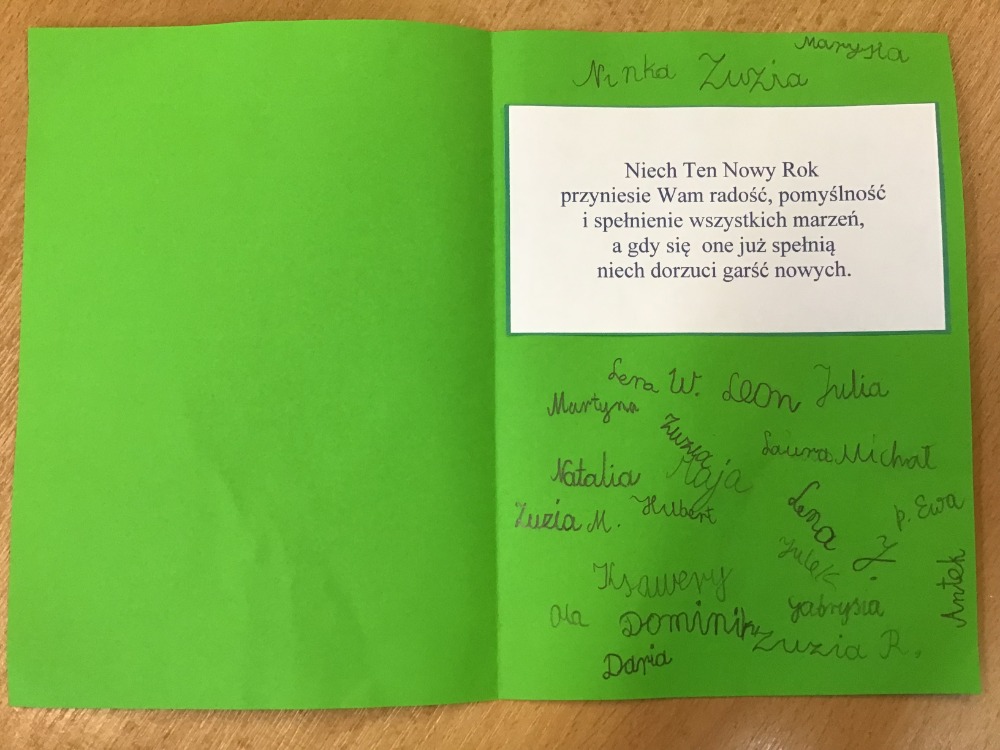 Marysia
Ninka Zuzia
Niech Ten Nowy Rok
przyniesie Wam radość, pomyślność
i spełnienie wszystkich marzeń,
a gdy się one już spełnią
niech dorzuci garść nowych.
Lena W. Leon Julia
Martyna
Zuzia
Laura Michał
Natalia Maja
Zuzia M. Hubert
Lena J.
p. Ewa
Julek
Ksawery
Antek
Ola Dominik
Gabrysia
Zuzia R.
Daria